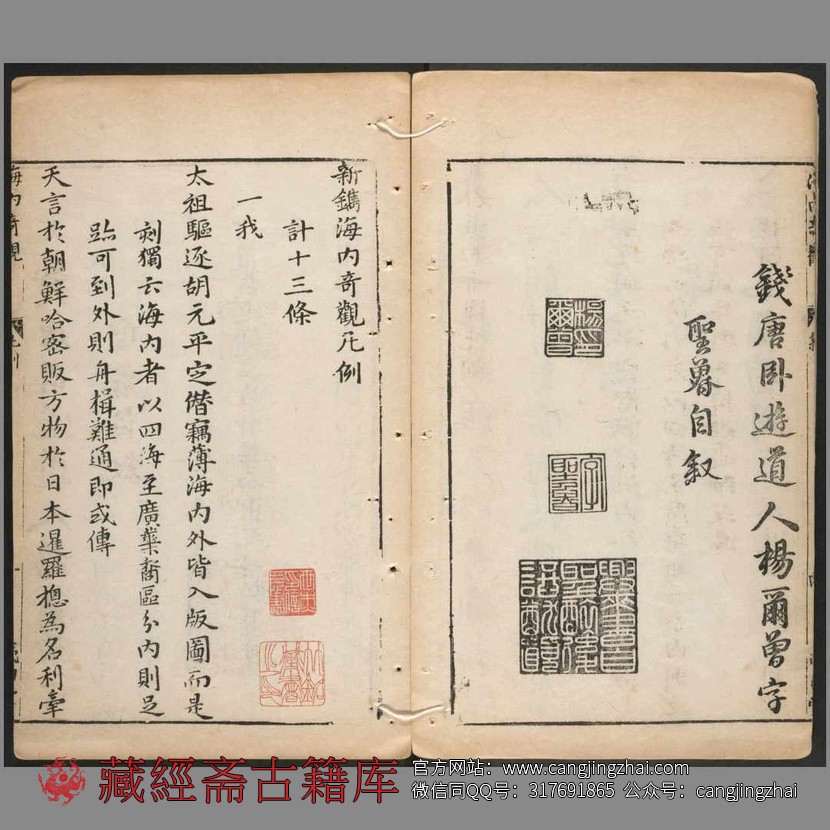 錢唐臥遊道人楊爾曾字
聖魯自叙
楊印爾曾
字聖魯
新鐫海内奇觀凡例
計十三條
一我
太祖驅逐胡元平定僭竊薄海内外皆入版圖而是
刻獨云海内者以四海至廣蘂裔區分内則足
跡可到外則舟楫難通即或傳
天言於朝鮮哈密販方物於日本暹羅揔為名利牽
海内奇觀
凡例
一
藏經斋古籍库
官方网站：www.cangjingzhai.com
微信同QQ号：317691865 公众号：cangjingzhai